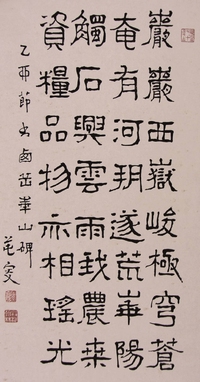 巖巖西嶽峻極穹蒼
奄有河朔遂荒華陽
觸石興雲雨我農桑
資糧品物亦相瑤光
節書西岳華山碑